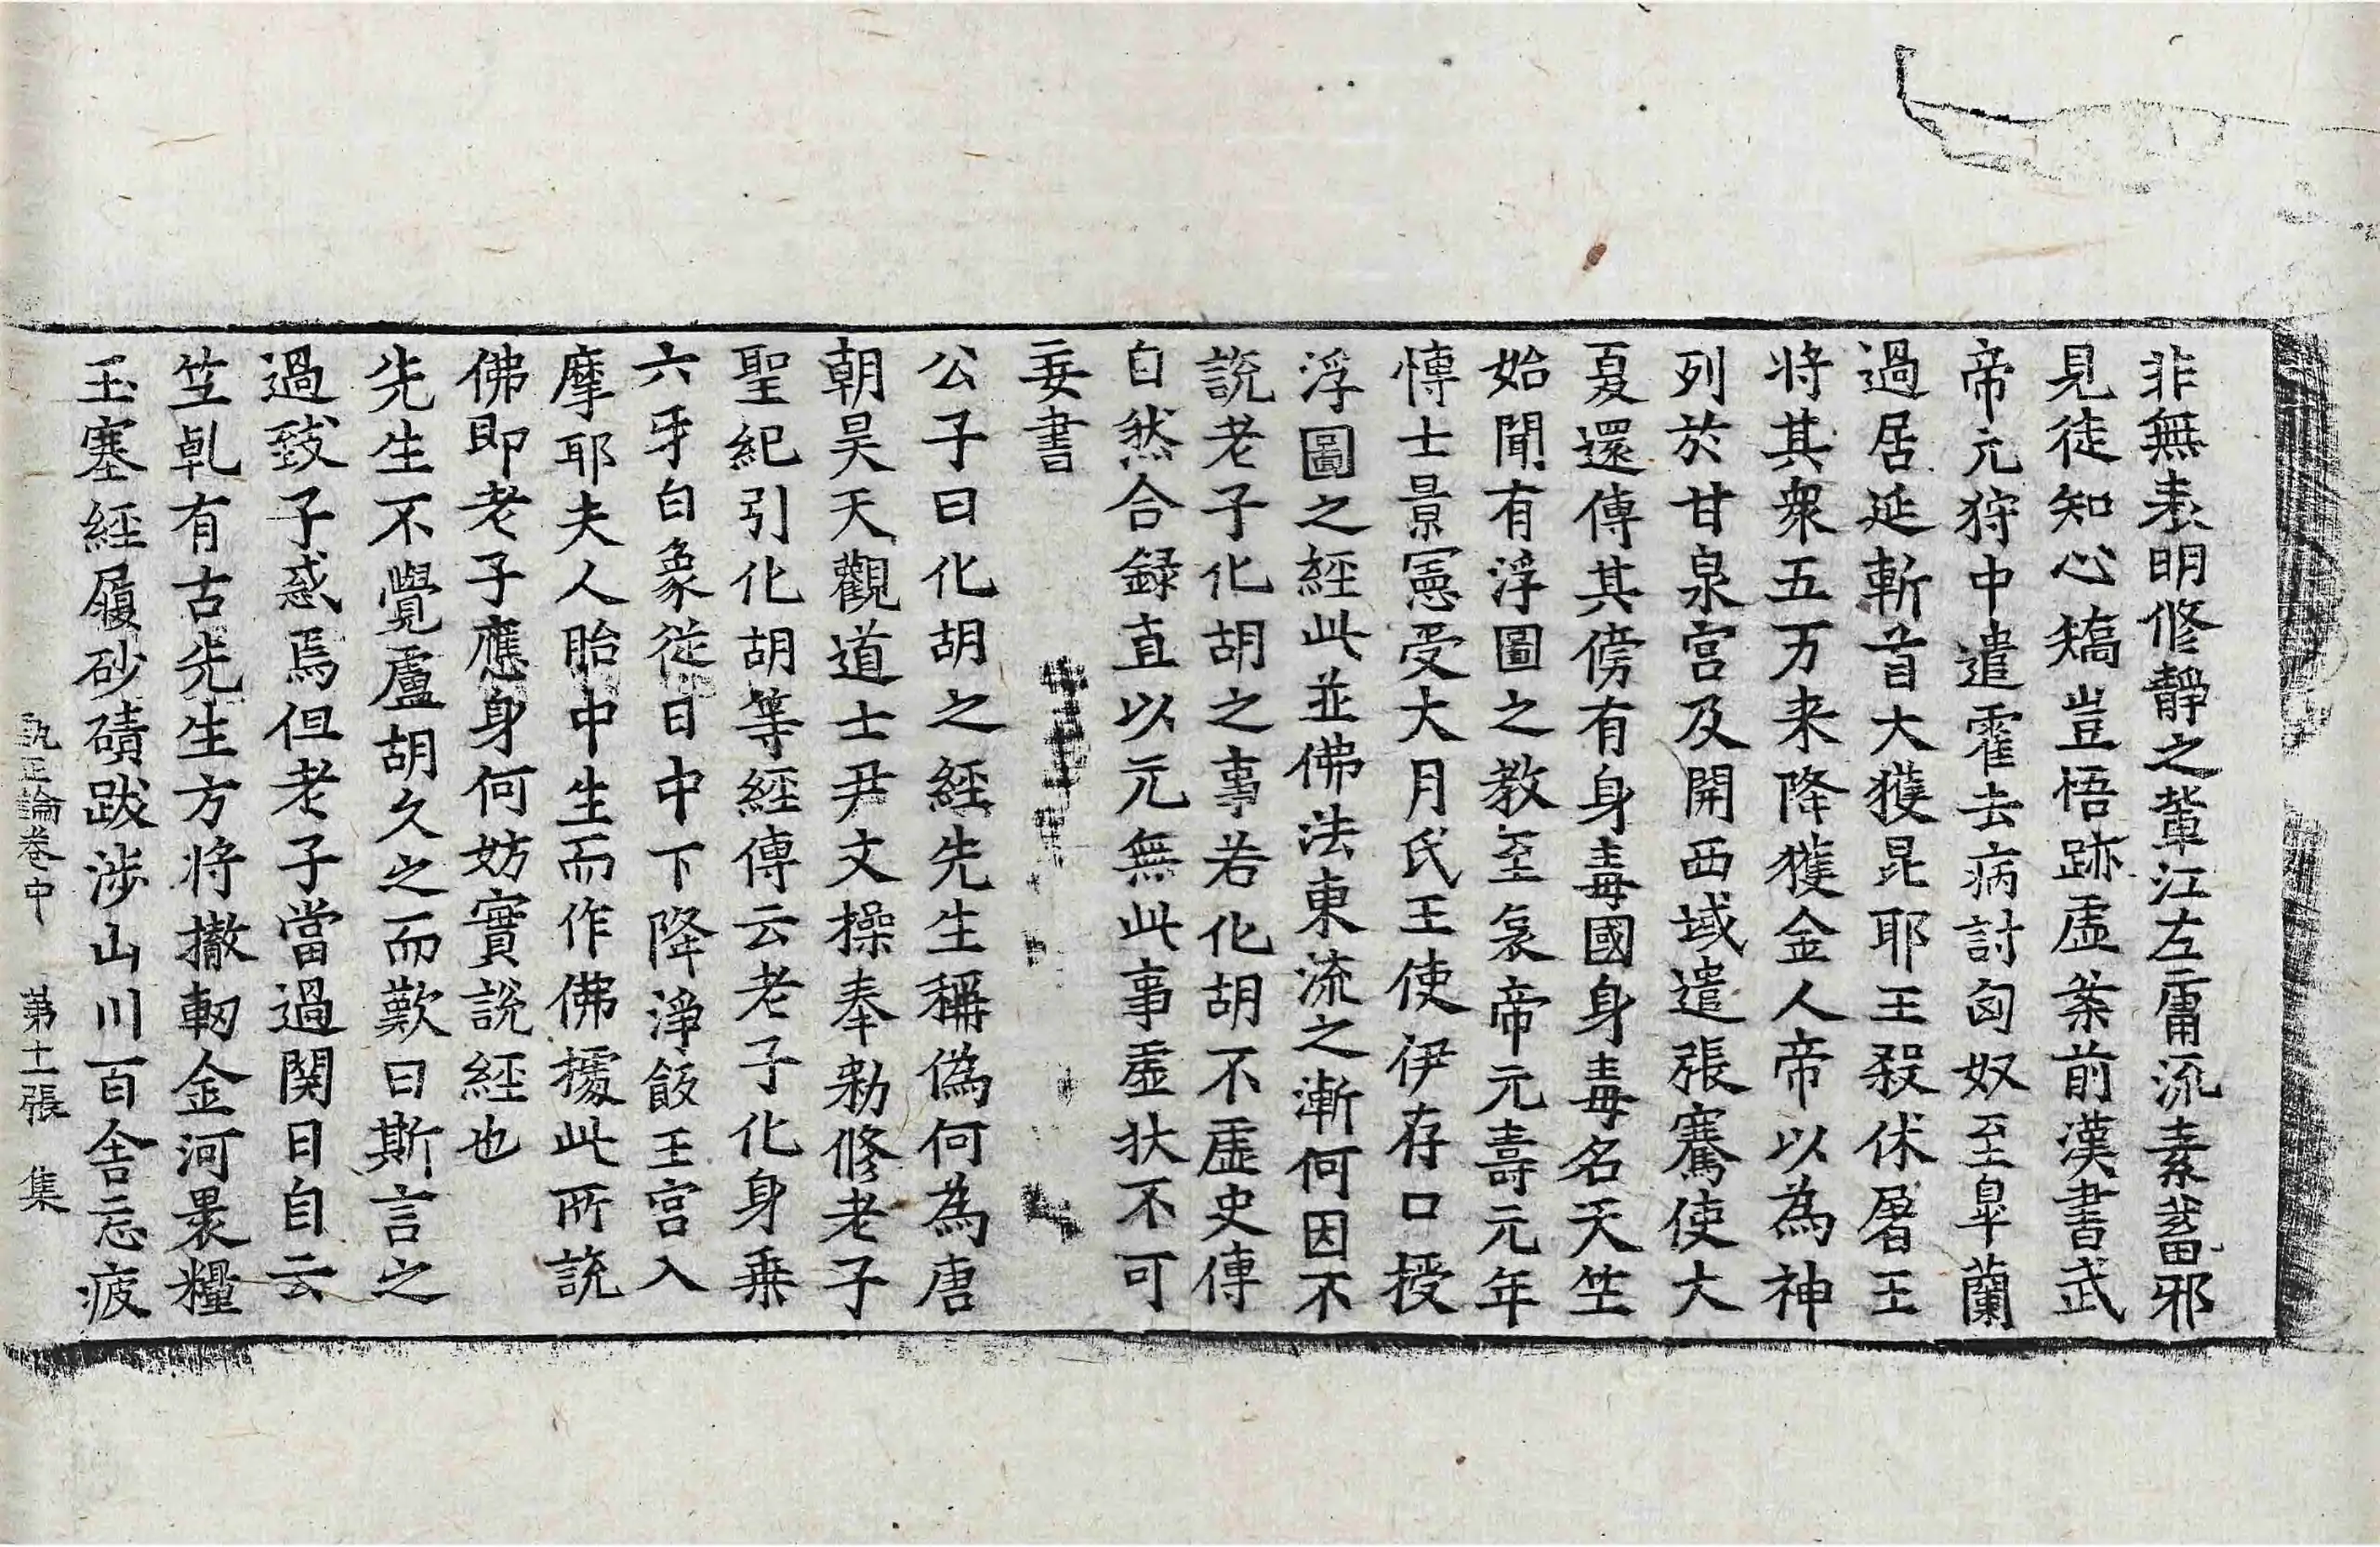 非無表明修靜之輩江左庸流素蓄邪
見徒知心矯豈悟跡虛案前漢書武
帝元狩中遣霍去病討匈奴至皐蘭
過居延斬首大獲昆耶王殺休屠王
将其衆五万来降獲金人帝以為神
列於甘泉宮及開西域遣張騫使大
夏還傳其傍有身毒國身毒名天竺
始聞有浮圖之教至哀帝元壽元年
愽士景憲受大月氏王使伊存口授
浮圖之經此並佛法東流之漸何因不
說老子化胡之事若化胡不虛史傳
自然合録直以元無此事虛狀不可
妄書
公子曰化胡之經先生稱偽何為唐
朝昊天觀道士尹文操奉勑修老子
聖紀引化胡等經傳云老子化身乗
六牙白象從日中下降淨飯王宮入
摩耶夫人胎中生而作佛據此所說
佛即老子應身何妨實說經也
先生不覺盧胡久之而歎曰斯言之
過致子惑焉但老子當過関日自云
竺乹有古先生方将撤軔金河褁糧
玉塞經履砂磧跋涉山川百舎忘疲
甄正論卷中 第十二張 集